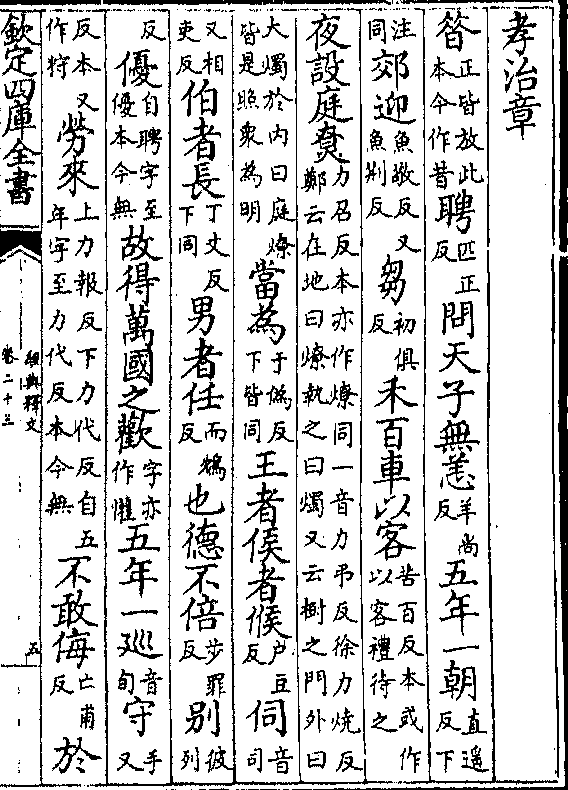 孝治章
㫺正皆放此本今作昔聘匹正反問天子無恙羊尚反五年一朝直遥反下
注同郊迎魚敬反又魚荆反芻初俱反禾百車以客苦百反本或作以客禮待之
夜設庭尞力召反本亦作燎同一音力弔反徐力燒反鄭云在地曰燎執之曰燭又云樹之門外曰
大燭於内曰庭燎皆是照衆為明當為于偽反下皆同王者侯者候户豆反伺音司
又相吏反伯者長丁丈反下同男者任而鴆反也德不倍步罪反别彼列
反優自聘字至優本今無故得萬國之歡字亦作懽五年一廵音旬守手又
反本又作狩勞來上力報反下力代反自五年字至力代反本今無不敢侮亡甫反於
欽定四庫全書
經典釋文
卷二十三
五